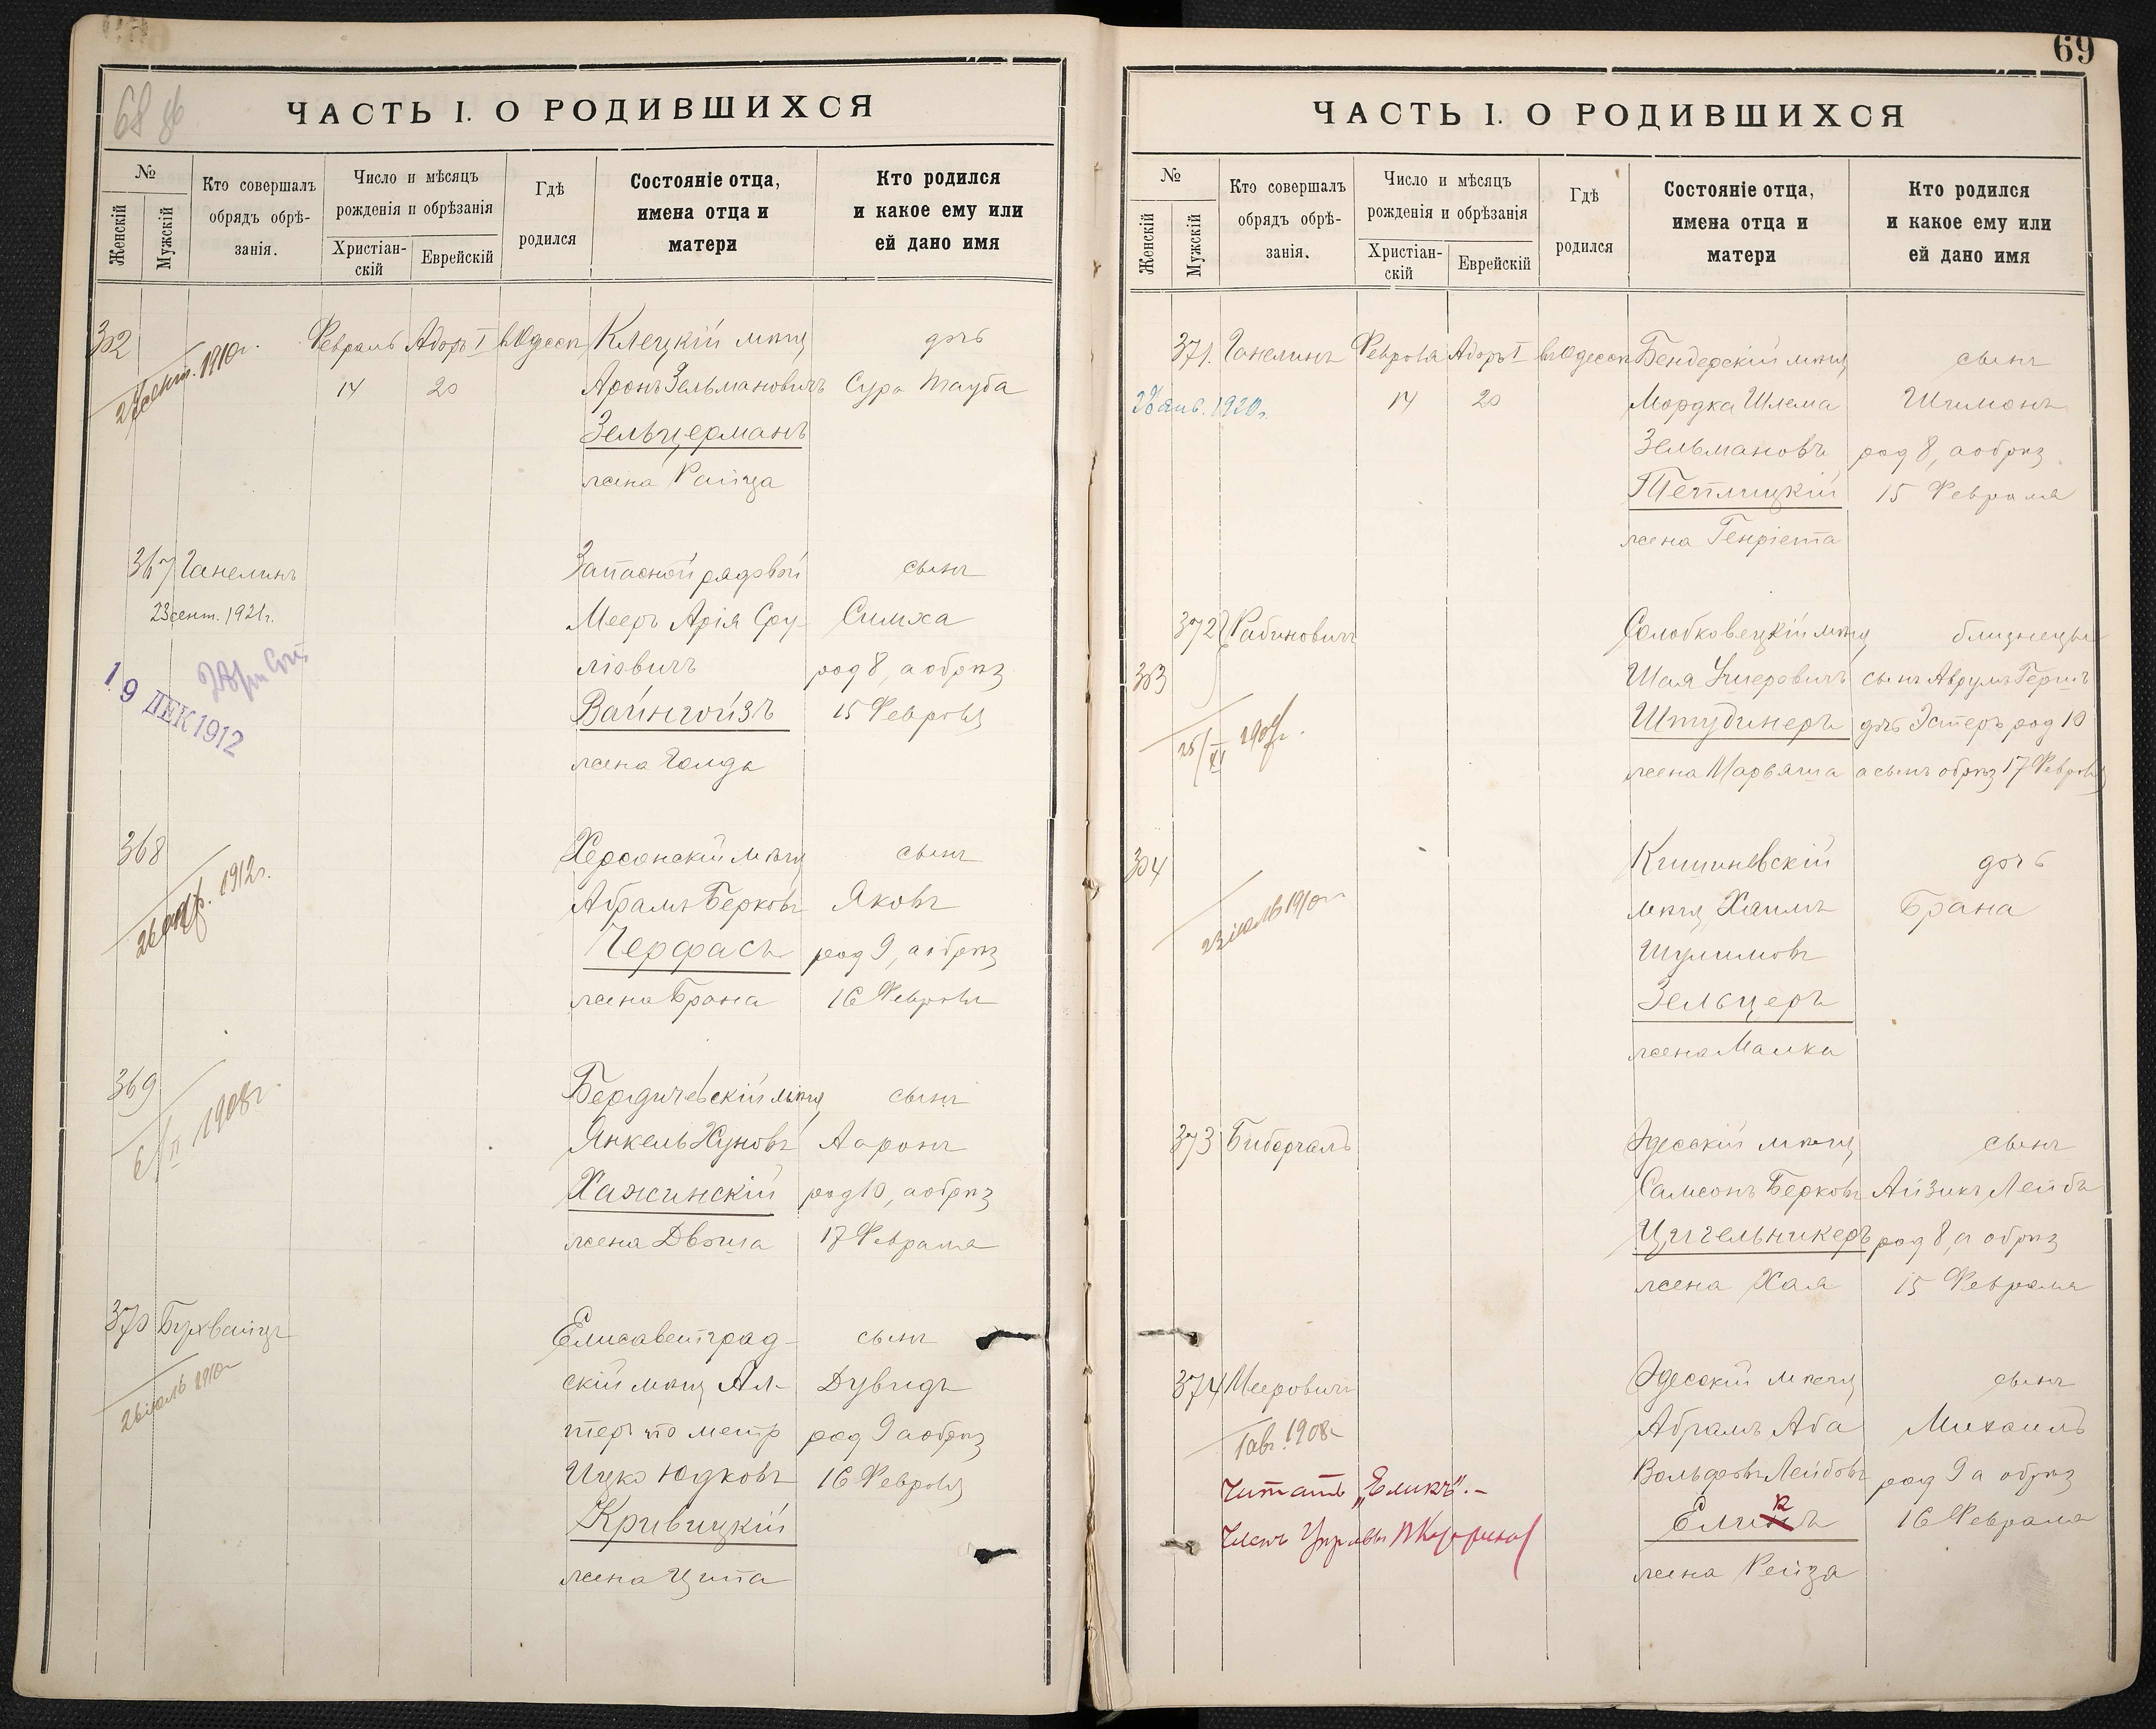 68 об
ЧАСТЬ I. О РОДИВШИХСЯ
№
Женскій
Мужскій
Кто совершалъ
обрядъ обрѣ-
занія.
Число и мѣсяцъ
рожденія и обрѣзанія
Христіан-
скій
Еврейскій
Гдѣ
родился
Состояніе отца,
имена отца и
матери
Кто родился
и какое ему или
ей дано имя
302
1910г.
Февраль
14
Адоръ I
20
въ Одессѣ
Клецкій мѣщ
Аронъ Зельмановичъ
Зельцерманъ
жена Райца
дочь
Сура Тауба
367 Ганелинъ
23 сент. 1921г.
19 ДЕК 1912
Запасной рядовой
Мееръ Арія Сру-
ліовичъ
Вайнгойзъ
жена Голда
сынъ
Симха
род 8, а обрѣз
15 Февраля
368
1912г.
Херсонскій мѣщ
Абрамъ Берковъ
Черфасъ
жена Брана
сынъ
Яковъ
род 9, а обрѣз
16 Февраля
369
6/II 1908г.
Бердичевскій мѣщ
Янкель Хуновъ
Хажинскій
жена Двойра
сынъ
Ааронъ
род 10, а обрѣз
17 Февраля
370 Бухвайцъ
26 іюль 1910г
Елисаветград-
скій мѣщ Ал-
теръ по метр
Ицко Юдковъ
Кривицкій
жена Ципа
сынъ
Дувидъ
род 9 а обрѣз
16 Февраля
69
ЧАСТЬ I. О РОДИВШИХСЯ
№
Женскій
Мужскій
Кто совершалъ
обрядъ обрѣ-
занія.
Число и мѣсяцъ
рожденія и обрѣзанія
Христіан-
скій
Еврейскій
Гдѣ
родился
Состояніе отца,
имена отца и
матери
Кто родился
и какое ему или
ей дано имя
371. Ганелинъ
янв. 1920г.
Февраля
14
Адоръ I
20
въ Одессѣ
Бендерскій мѣщ
Мордка Шлема
Зельмановъ
Теплицкій
жена Генріета
сынъ
Шимонъ
род 8, а обрѣз
15 Февраля
372 Рабиновичъ
303
25/XI 1909г.
Солобковецкій мѣщ
Шая Ушеровичъ
Штудинеръ
жена Марьяша
близнецы
сынъ Аврумъ Гершъ
дочь Эстеръ род 10
а сынъ обрѣз 17 Февраля
304
23 іюль 1910г
Кишиневскій
мѣщ Хаимъ
Шулимовъ
Зельцеръ
жена Малка
дочь
Брана
373 Бибергалъ
Одесскій мѣщ
Самсонъ Берковъ
Цигельникеръ
жена Хая
сынъ
Айзикъ Лейбъ
род 8, а обрѣз
15 Февраля
374 Мееровичъ
1 авг. 1908г
Читать „Еликъ“. –
Членъ Управы
Одесскій мѣщ
Абрамъ Аба
Вольфовъ Лейбовъ
Елинъ
к
жена Рейза
сынъ
Михаилъ
род 9 а обрѣз
16 Февраля